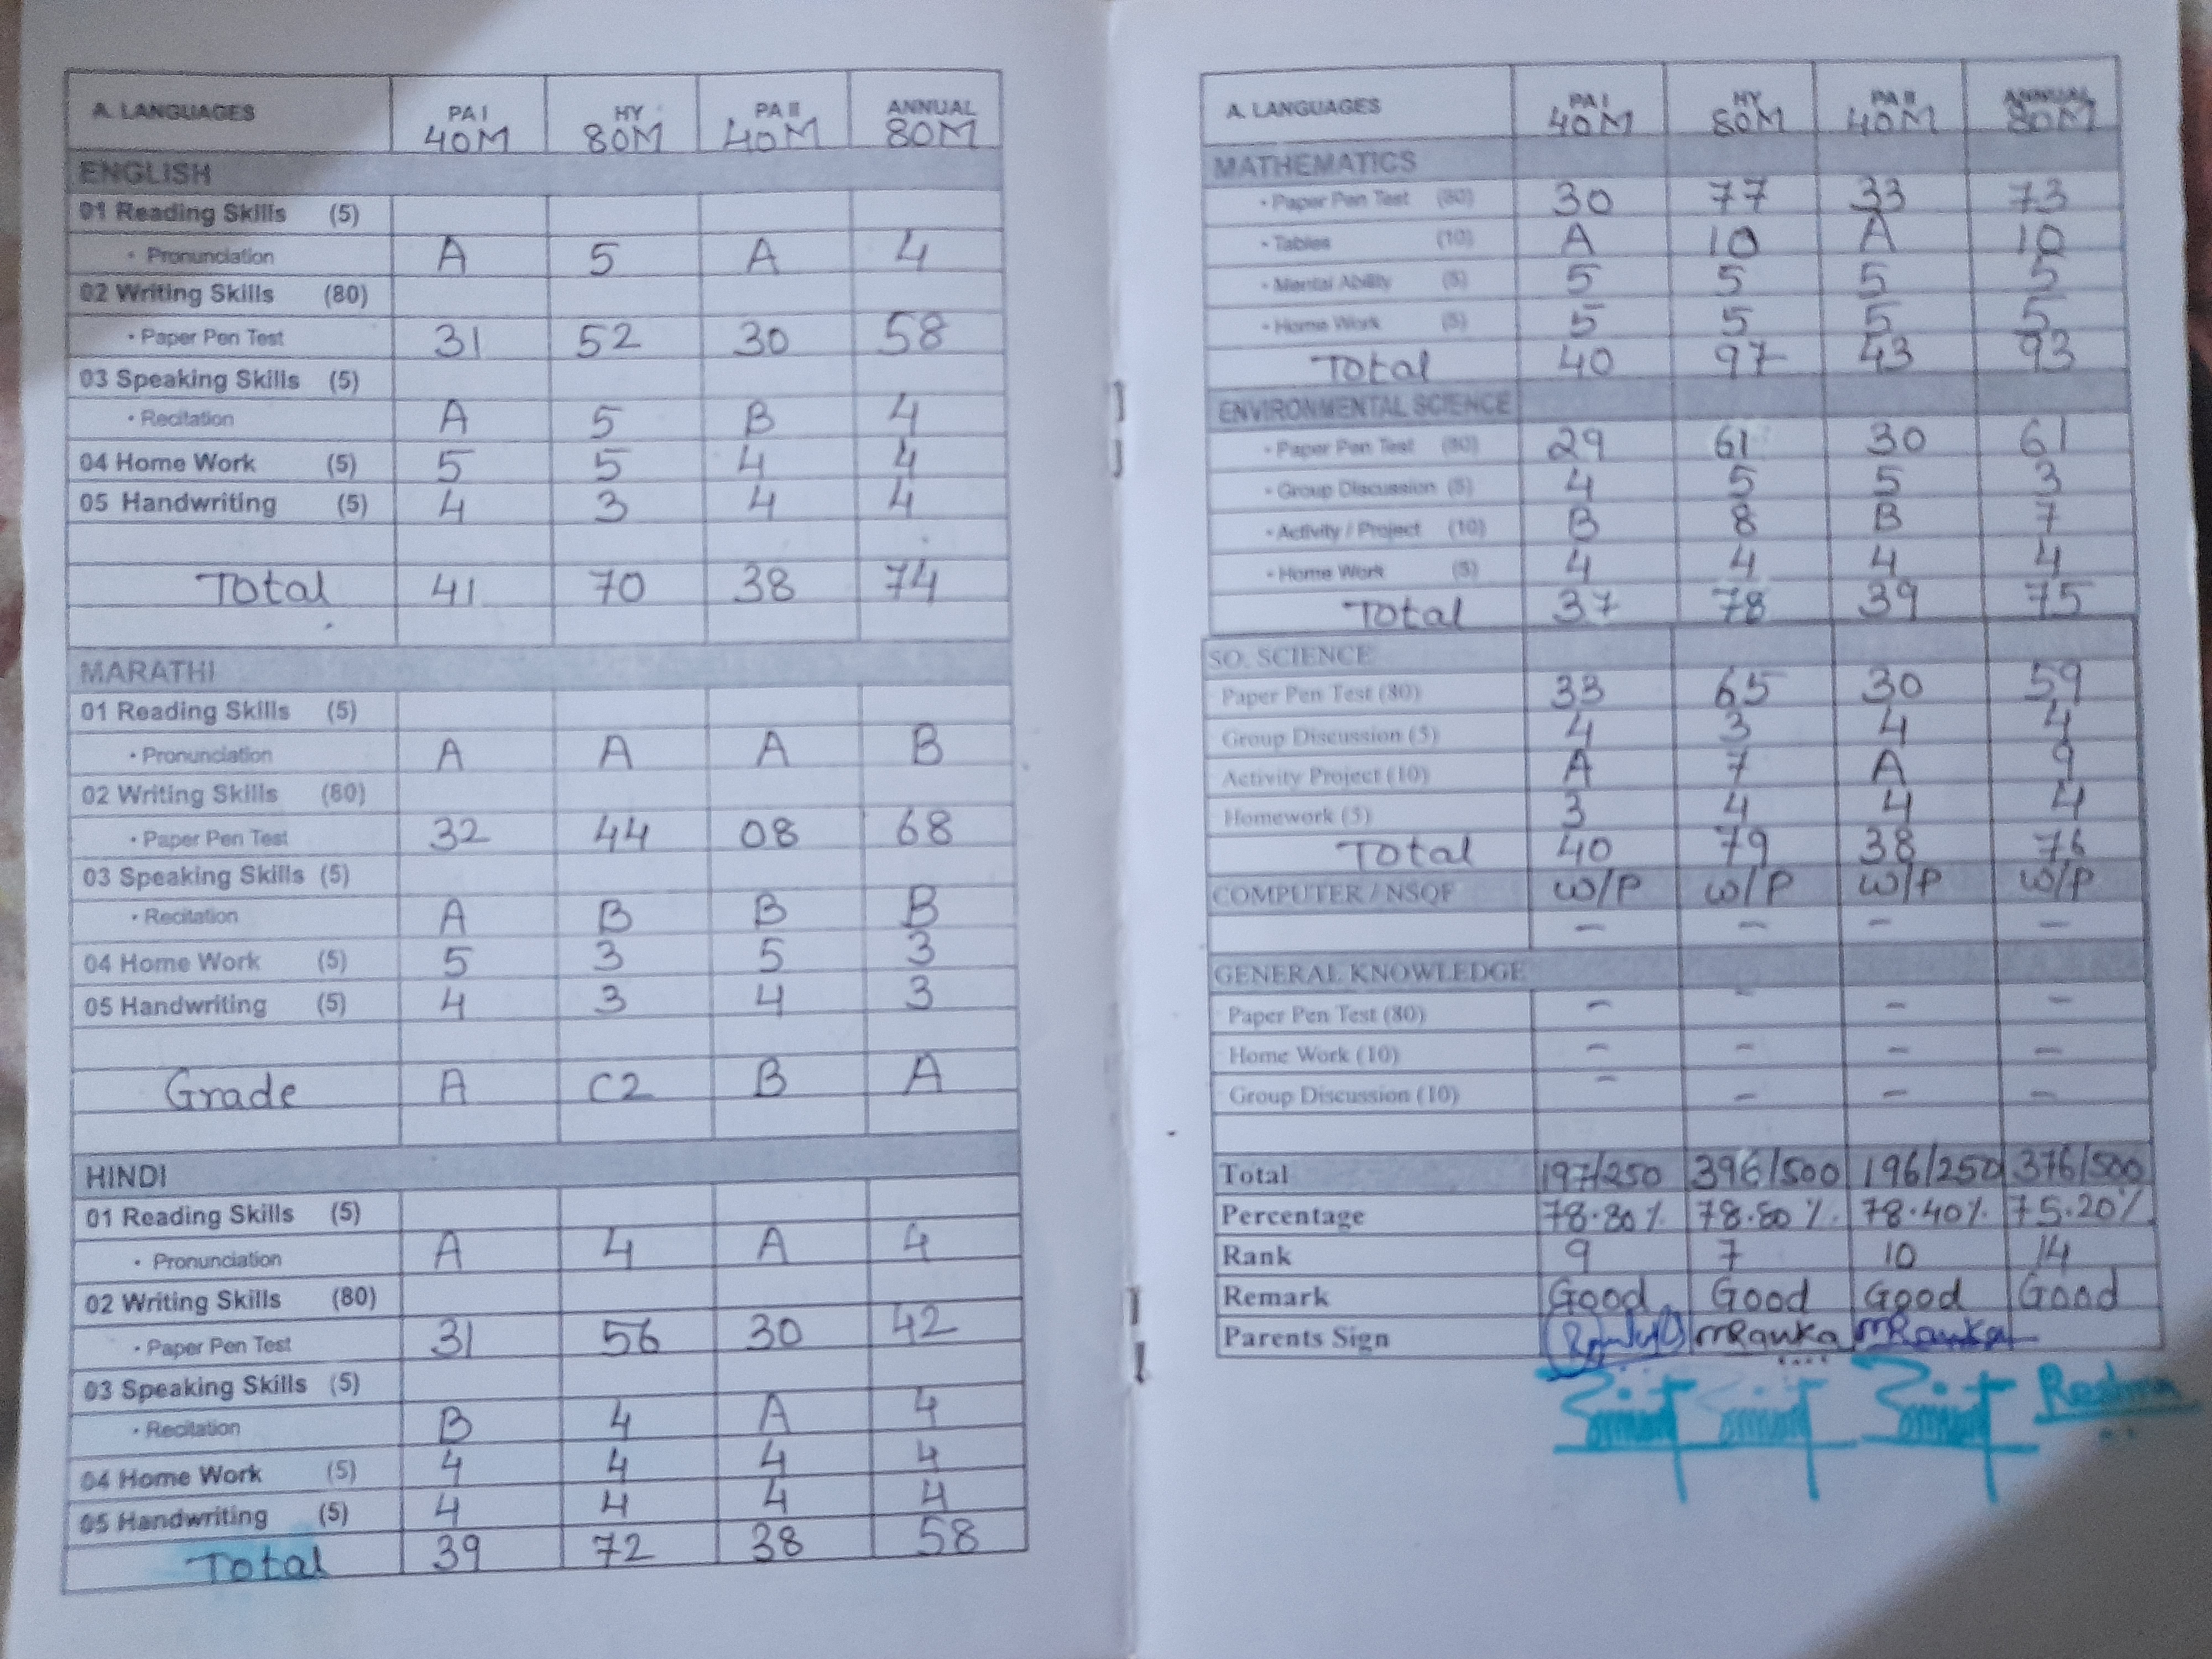 A. LANGUAGES PA I 40M HY 80M PA II 40M ANNUAL 80M
ENGLISH
01 Reading Skills (5)
• Pronunciation A 5 A 4
02 Writing Skills (80)
• Paper Pen Test 31 52 30 58
03 Speaking Skills (5)
• Recitation A 5 B 4
04 Home Work (5) 5 5 4 4
05 Handwriting (5) 4 3 4 4
Total 41 70 38 74
MARATHI
01 Reading Skills (5)
• Pronunciation A A A B
02 Writing Skills (80)
• Paper Pen Test 32 44 08 68
03 Speaking Skills (5)
• Recitation A B B B
04 Home Work (5) 5 3 5 3
05 Handwriting (5) 4 3 4 3
Grade A C2 B A
HINDI
01 Reading Skills (5)
• Pronunciation A 4 A 4
02 Writing Skills (80)
• Paper Pen Test 31 56 30 42
03 Speaking Skills (5)
• Recitation B 4 A 4
04 Home Work (5) 4 4 4 4
05 Handwriting (5) 4 4 4 4
Total 39 72 38 58
A. LANGUAGES PA I 40M HY 80M PA II 40M ANNUAL 80M
MATHEMATICS
• Paper Pen Test (80) 30 77 33 73
• Tables (10) A 10 A 10
• Mental Ability (5) 5 5 5 5
• Home Work (5) 5 5 5 5
Total 40 97 43 93
ENVIRONMENTAL SCIENCE
• Paper Pen Test (80) 29 61 30 61
• Group Discussion (5) 4 5 5 3
• Activity / Project (10) B 8 B 7
• Home Work (5) 4 4 4 4
Total 37 78 39 75
SO. SCIENCE
Paper Pen Test (80) 33 65 30 59
Group Discussion (5) 4 3 4 4
Activity Project (10) A 7 A 9
Homework (5) 3 4 4 4
Total 40 79 38 76
COMPUTER / NSQF W/P W/P W/P W/P
– – – –
GENERAL KNOWLEDGE
Paper Pen Test (80) – – – –
Home Work (10) – – – –
Group Discussion (10) – – – –
Total 197/250 396/500 196/250 376/500
Percentage 78.80% 78.80% 78.40% 75.20%
Rank 9 7 10 14
Remark Good Good Good Good
Parents Sign mRanka mRanka